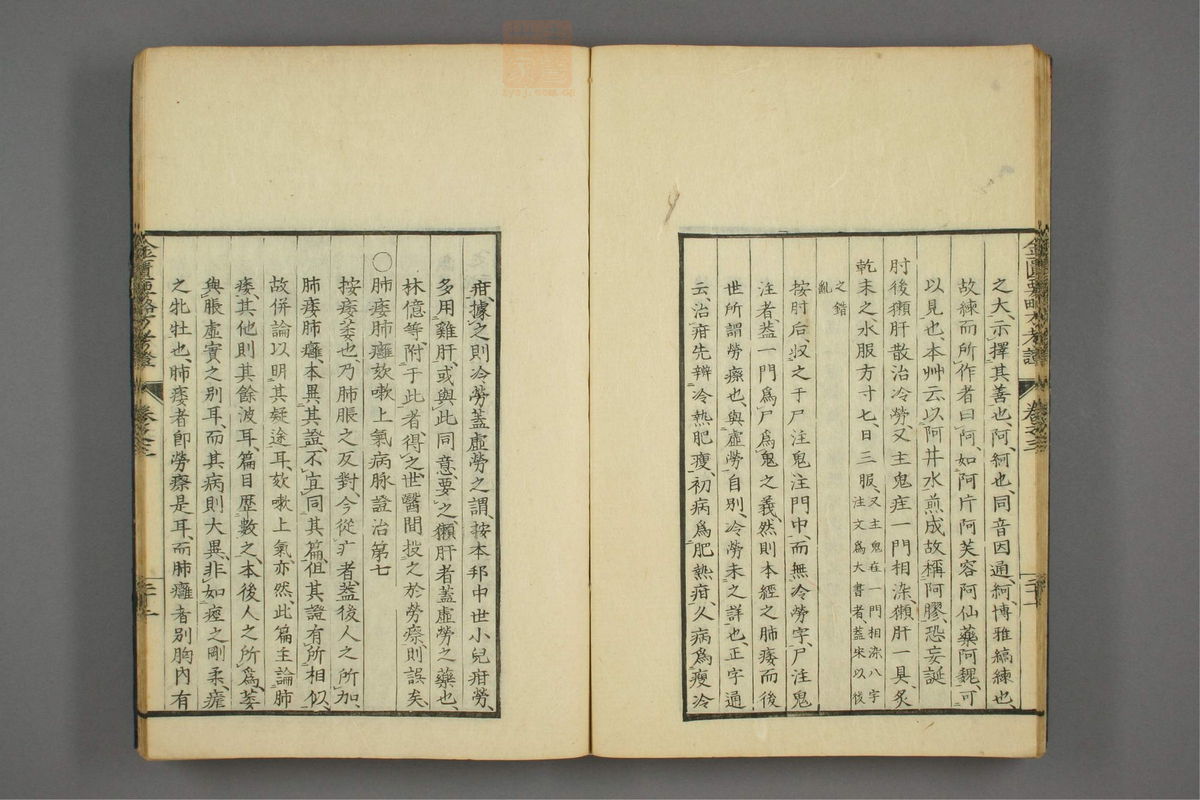 之大、示擇其善也、阿、綱也、同音因通、綱、博雅縞練也、
故練而所作者曰阿、如阿片阿芙容阿仙藥阿魏、可
以見也、本艸云、以阿井水煎成故稱阿膠、恐妄誕
肘後獺肝散治冷勞又主鬼疰一門相染獺肝一具、炙
乾末之水服方寸七、日三服、又主鬼疰一門相染八字
注文爲大書者、蓋宋以後
之錯
亂
按肘后、収之于尸注鬼注門中、而無冷勞字、尸注鬼
注者、蓋一門爲尸爲鬼之義、然則本經之肺痿而後
世所謂勞瘵也、與虛勞自別、冷勞未之詳也、正字通
云、治疳先辨冷熱肥瘦、初病爲肥熱疳、久病爲瘦冷
疳、據之則冷勞蓋虛勞之謂、按本邦中世小兒疳勞、
多用雞肝、或與此同意、要之、獺肝者蓋虛勞之藥也、
林億等附于此者得之、世醫間投之於勞瘵則誤矣、
〇肺痿肺癰欬嗽上氣病脉證治第七
按痿、萎也、乃肺脹之反對、今從疒者、蓋後人之所加、
肺痿肺癰本異其證、不宜同其篇、但其證有所相似、
故併論以明其疑途耳、欬嗽上氣亦然、此篇主論肺
痿、其他則其餘波耳、篇目歷數之、本後人之所爲、萎
與脹虛實之別耳、而其病則大異、非如痙之剛柔、瘧
之牝牡也、肺痿者卽勞瘵是耳、而肺癰者別胸內有
金匱要略方考證
卷之三